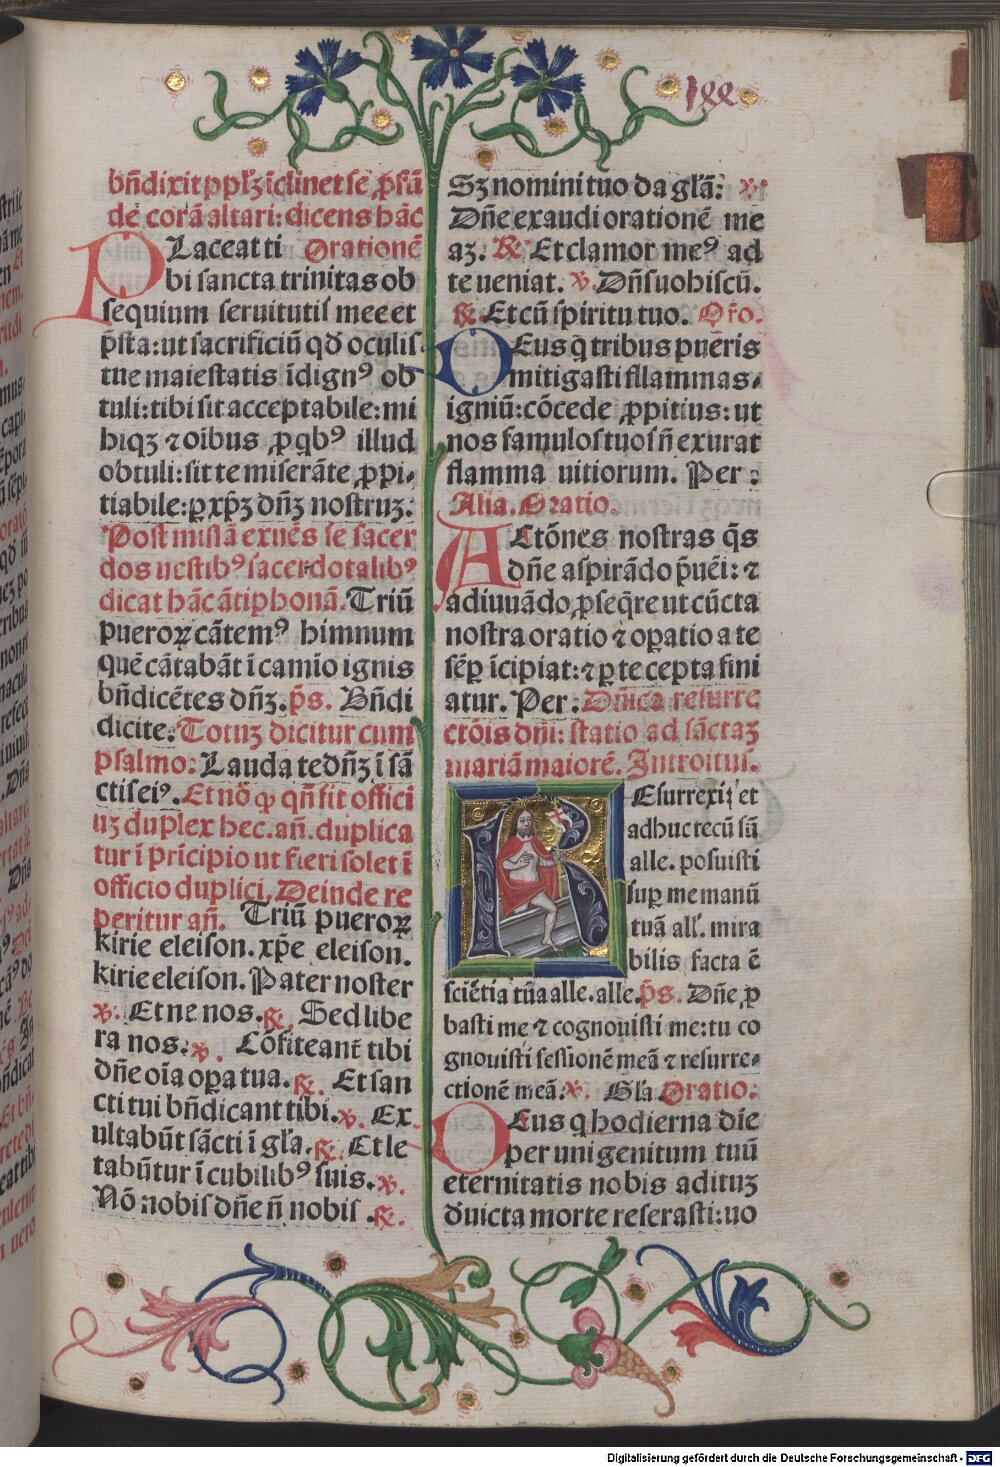 lxx
bñdixit ppłꝫ īclinet se ꝓfū
de corā altari: dicens hāc
Placeat ti Orationē
bi sancta trinitas ob
sequium seruitutis mee et
p̄sta: ut sacrificiū qđ oculis
tue maiestatis īdignꝰ ob
tuli: tibi sit acceptabile: mi
hiqꝫ ⁊ oībus ꝓ qbꝰ illud
obtuli: sit te miserāte ꝓpi⸗
tiabile: ꝑ xp̄ꝫ dñꝫ nostruꝫ:
Post missā exuēs se sacer
dos uestibꝰ sacerdotalibꝰ
dicat hāc ātiphonā. Triū
pueroꝝ cātemꝰ himnum
quē cātabāt ī camīo ignis
bñdicētes dñꝫ. p̄s. Bñdi
dicite. Totuꝫ dicitur cum
psalmo: Laudate dñꝫ ī sā
ctis eiꝰ. Et nō ꝙ qñ fit offici
uꝫ duplex hec. añ. duplica
tur ī prīcipio ut fieri solet ī
officio duplici. Deinde re
peritur añ. Triū pueroꝝ
kirie eleison. xp̄e eleison.
kirie eleison. Pater noster
℣. Et ne nos. ℟. Sed libe
ra nos. ℣. Cōfiteant tibi
dñe oīa oꝑa tua. ℟. Et san
cti tui bñdicant tibi. ℣. Ex
ultabūt sācti ī gła. ℟. Et le
tabūtur ī cubilibꝰ suis. ℣.
Nō nobis dñe ñ nobis. ℟.
Sꝫ nomini tuo da głā: ℣.
Dñe exaudi orationē me
aꝫ. ℟. Et clamor meꝰ ad
te ueniat. ℣. Dñs uobiscū.
℟. Et cū spiritu tuo. Or̄o.
Deus q̄ tribus pueris
mitigasti fllammas⸗
igniū: cōcede ꝓpitius: ut
nos famulos tuos ñ exurat
flamma uitiorum. Per:
Alia. Oratio.
Actōnes nostras q̄s
dñe aspirādo p̄uēi: ⁊
adiuuādo ꝓseq̄re ut cūcta
nostra oratio ⁊ oꝑatio a te
sēꝑ īcipiat: ⁊ ꝑ te cepta fini
atur. Per: Dñica resurre
ctōis dñi: statio ad sāctaꝫ
mariā maiorē. Introitus.
Resurrexi, et
adhuc tecū sū
alle. posuisti
suꝑ me manū
tuā all. mira
bilis facta ē
sciētia tūa alle. alle. p̄s. Dñe, ꝓ
basti me ⁊ cognouisti me: tu co
gnouisti sessionē meā ⁊ resurre⸗
ctionē meā. ℣. Gła. Oratio:
Deus q hodierna die
per unigenitum tuū
eternitatis nobis adituꝫ
deuicta morte reserasti: uo
Digitalisierung gefördert durch die Deutsche Forschungsgemeinschaft - DFG